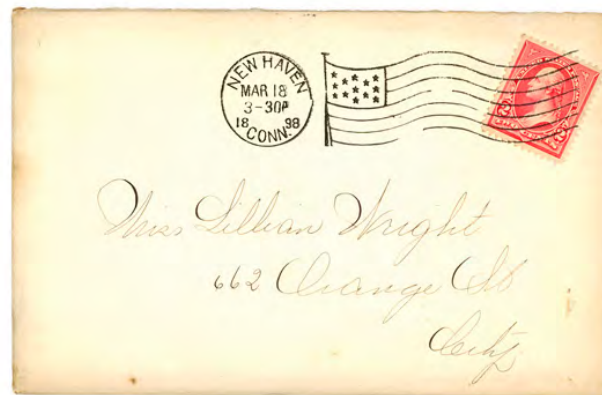 NEW HAVEN
MAR 18
3-30P
18 98
CONN.
2 2
Miss Lillian Wright
662 Orange St
City